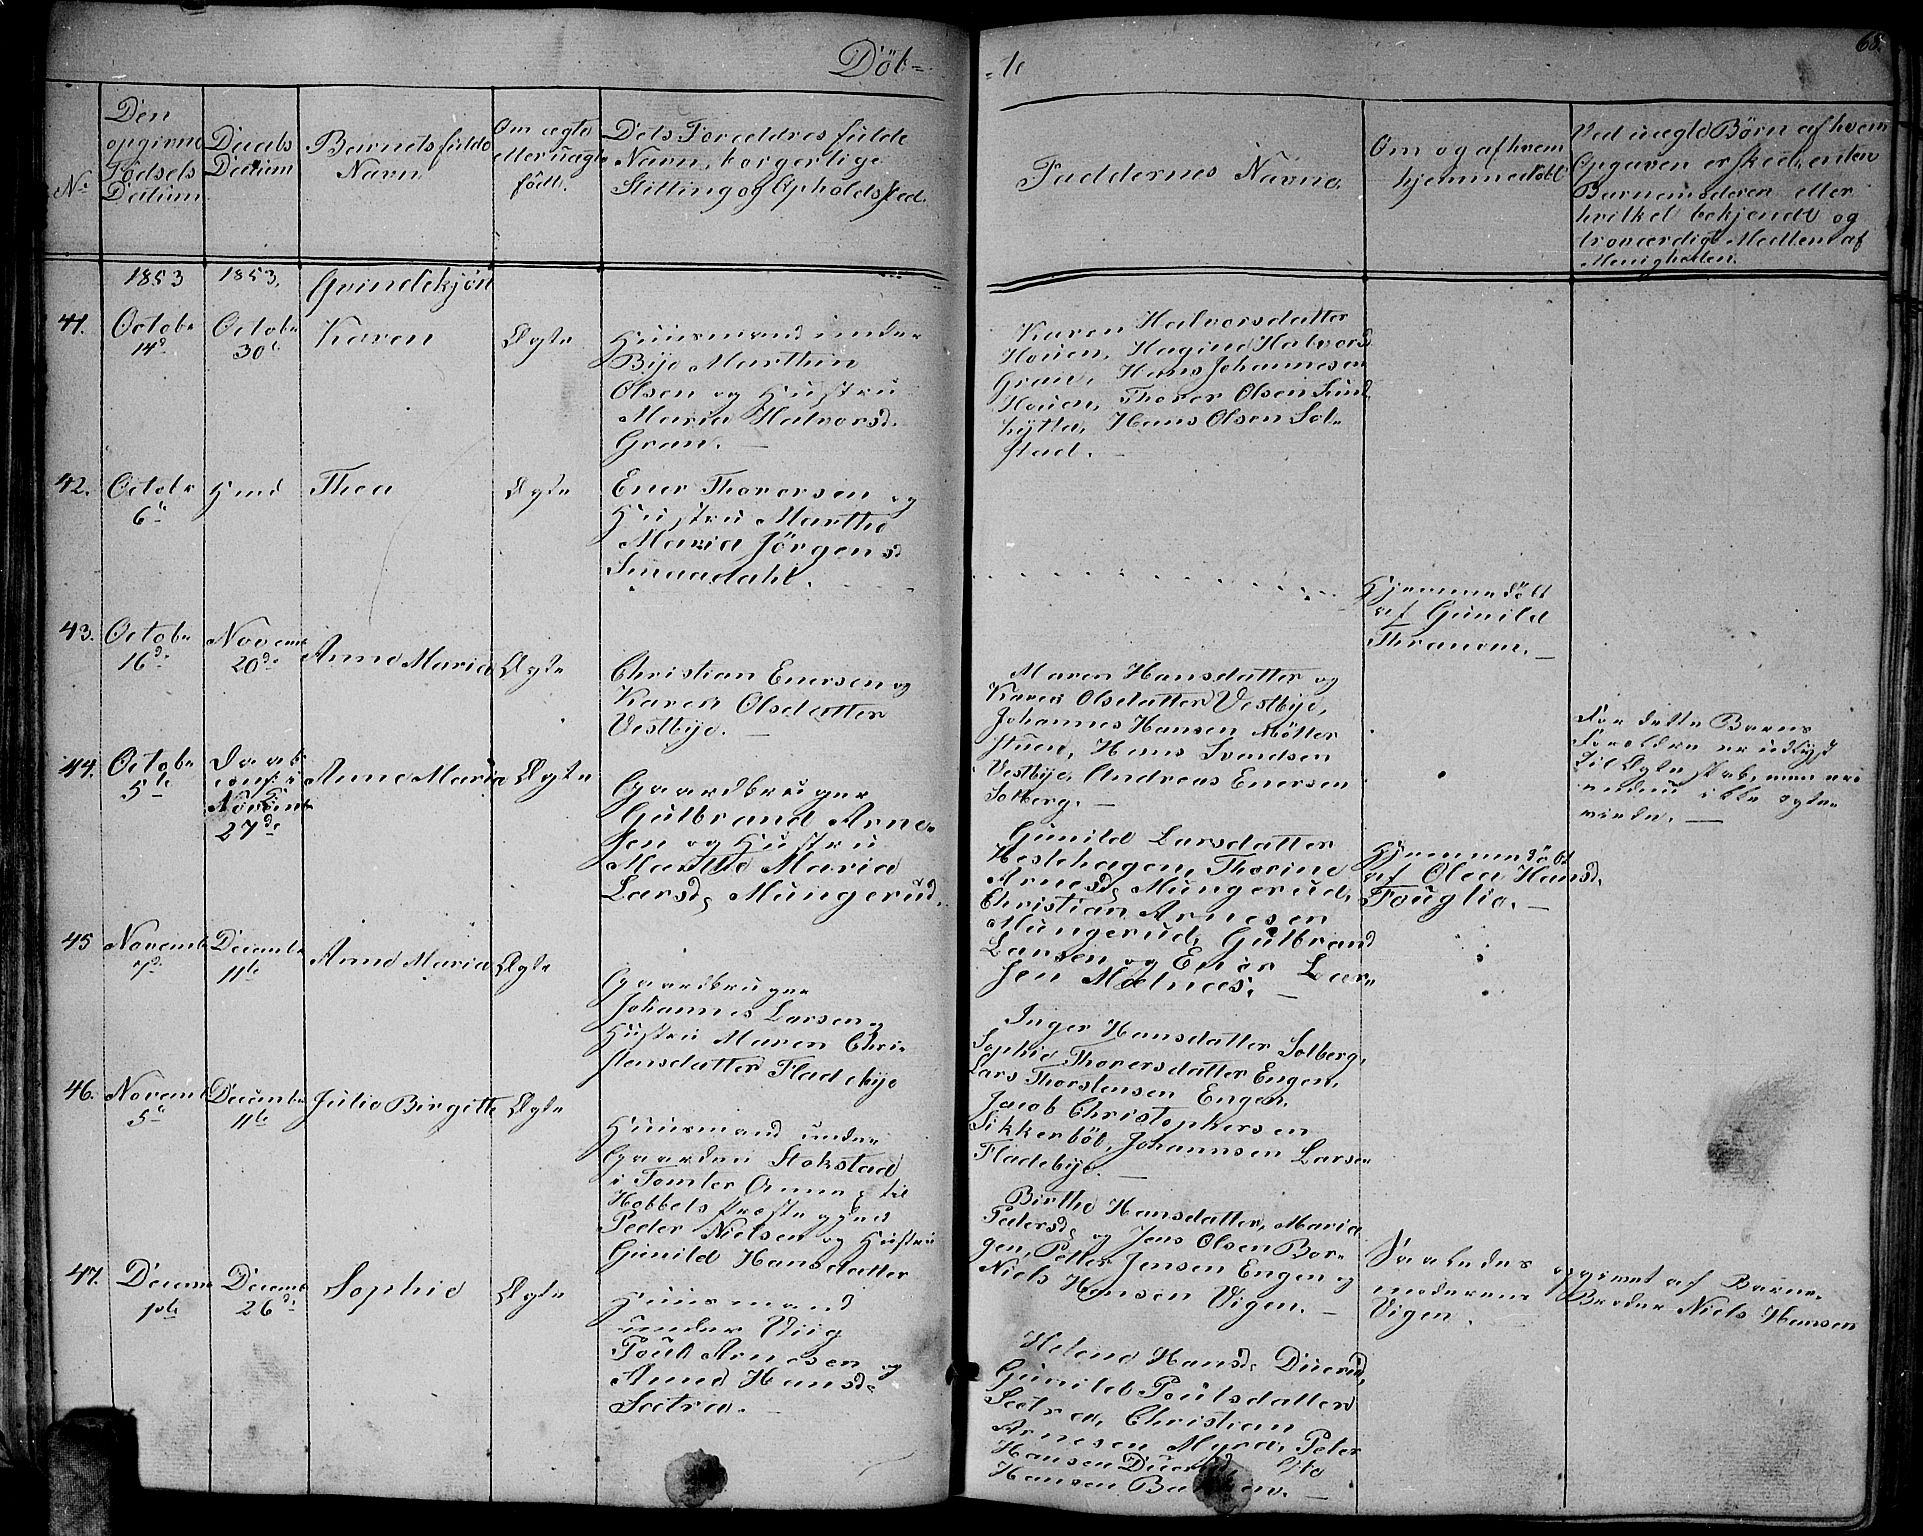 Döb-
-te
68.
No
Den
opgivne
Födsels
Datum
Daabs
Datum
Barnets fulde
Navn
Om ægte
eller uægte
født.
Dets Forældres fulde
Navn, borgerlige
Stilling og Opholdsted.
Faddernes Navne.
Om og af hvem
hjemmedöbt
Ved uægte Børn af hvem
Opgaven er skeet, enten
Barnemoderen eller
hvilket bekjendt og
troværdigt Medlem af
Menigheden.
1853
1853.
Qvindekjön
41.
Octobr
14de
Octobr
30te
Karen
Ægte
Huusmand under
Bye Marthin
Olsen og Hustru
Maria Halvorsd.
Gran.
Karen Halvorsdatter
Houen, Hagine Halvorsd
Gran, Hans Johannesen
Houen, Thorer Olsen Sund
hytta, Hans Olsen Sol-
stad.
42.
Octobr
6te
Thea
Ægte
Ener Thorersen og
Hustru Marthe
Maria Jörgensd
Smaadahl.
Hjemmedöbt
af Gunild
Thranem.
43.
Octobr
16de
Novemb
20de
Anne Maria
Ægte
Christian Enersen og
Karen Olsdatter
Vestbye.
Maren Hansdatter og
Karen Olsdatter Vestbye,
Johannes Hansen Mötter
stuen, Hans Svendsen
Vestbye, Andreas Enersen
Solberg.
For dette Barns
Forældre er udlyst
til Ægteskab, men ere
endnu ikke egte-
viede.
44.
Octobr
5te
Daab
conf. i
Novemb
27de
Anne Maria
Ægte
Gaardbruger
Gulbrand Arne-
sen og Hustru
Marthe Maria
Larsd, Mungerud.
Gunild Larsdatter
Heslehagen, Thorine
Arnesd, Mungerud,
Christian Arnesen
Mungerud, Gulbrand
Larsen og Ener Lar-
sen Moelnæs.
Hjemmedöbt
af Olea Hansd,
Fouglie.
45
Novemb
7de
Decemb
11te
Anne Maria
Ægte
Gaardbruger
Johannes Larsen og
Hustru Maren Chri-
stensdatter Fladebye
Inger Hansdatter Solberg,
Sophie Thorersdatter Engen,
Lars Thorstensen Engen,
Jacob Christophersen
Sikkerböl, Johannsen Larsen
Fladebye.
46.
Novemb
5te
Decemb
11te
Julie Birgitte
Ægte
Huusmand under
Gaarden Stokstad
i Tomter Annex til
Hobbels Præstegjeld
Peder Nielsen og Hustru
Gunild Hansdatter
Birthe Hansdatter, Maria
Pedersd, og Jens Olsen Bor-
gen, Peder Jensen Engen og
Niels Hansen Vigen.
Saaledes opgivet af Barne-
moderens Broder Niels Hansen
Vigen.
47.
Decem
1ste
Decemb
26de
Sophie
Ægte
Huusmand
under Viig
Poul Arnesen og
Anne Hansd.
Sætra.
Helene Hansd, Duerud,
Gunild Poulsdatter
Sætra, Christian
Arnesen Myra, Peter
Hansen Duerud, Ole
Hansen Bakken.